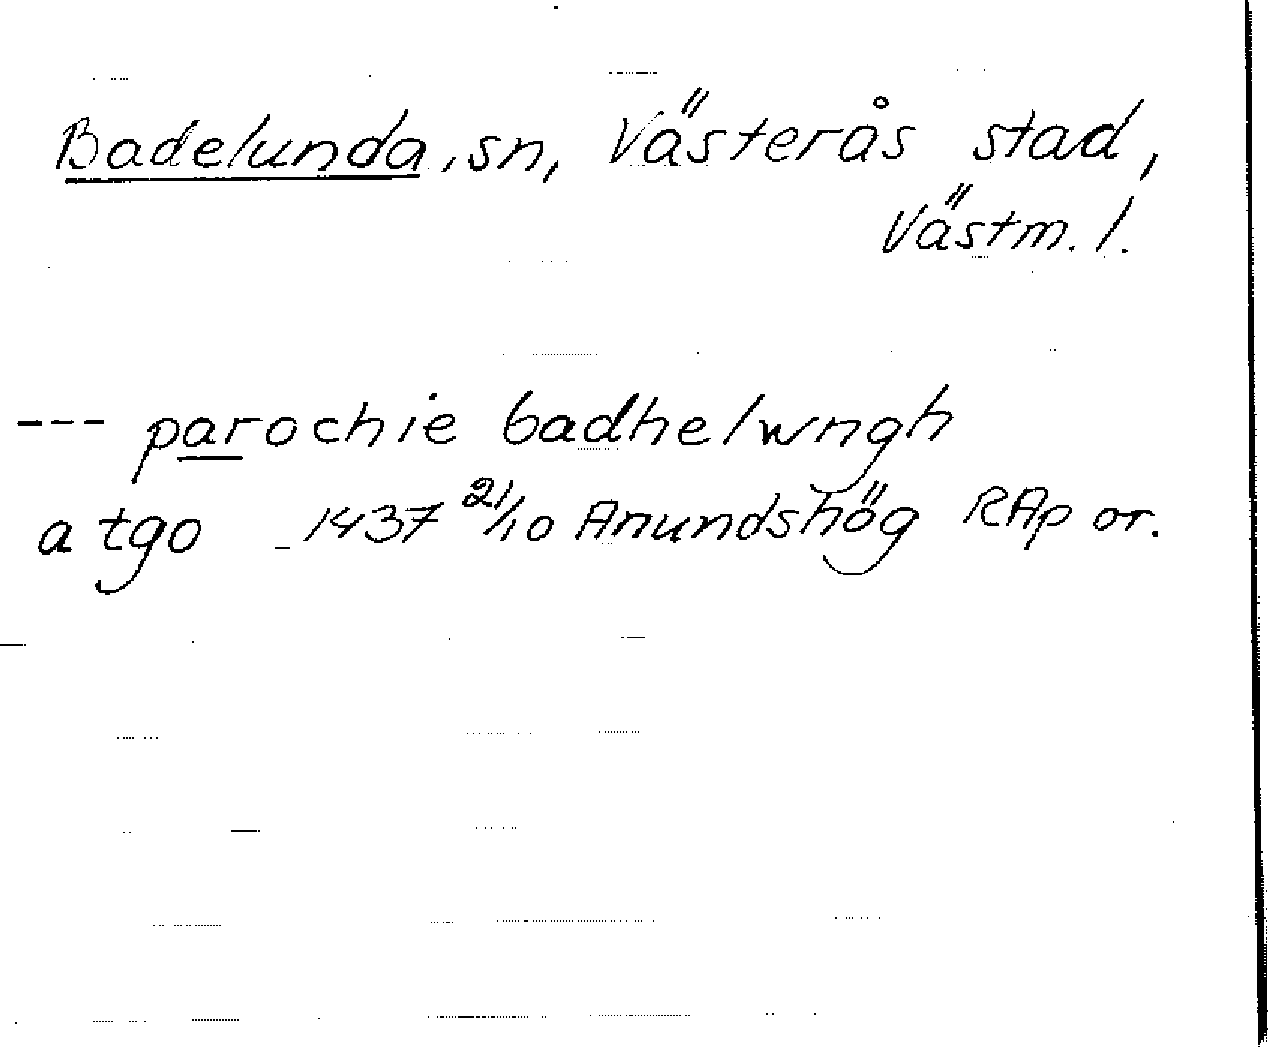 Badelunda, sn, Västerås stad,
Västm. l.
--- parochie badhelwngh
a tgo 1437 21/10 Anundshög RAp or.